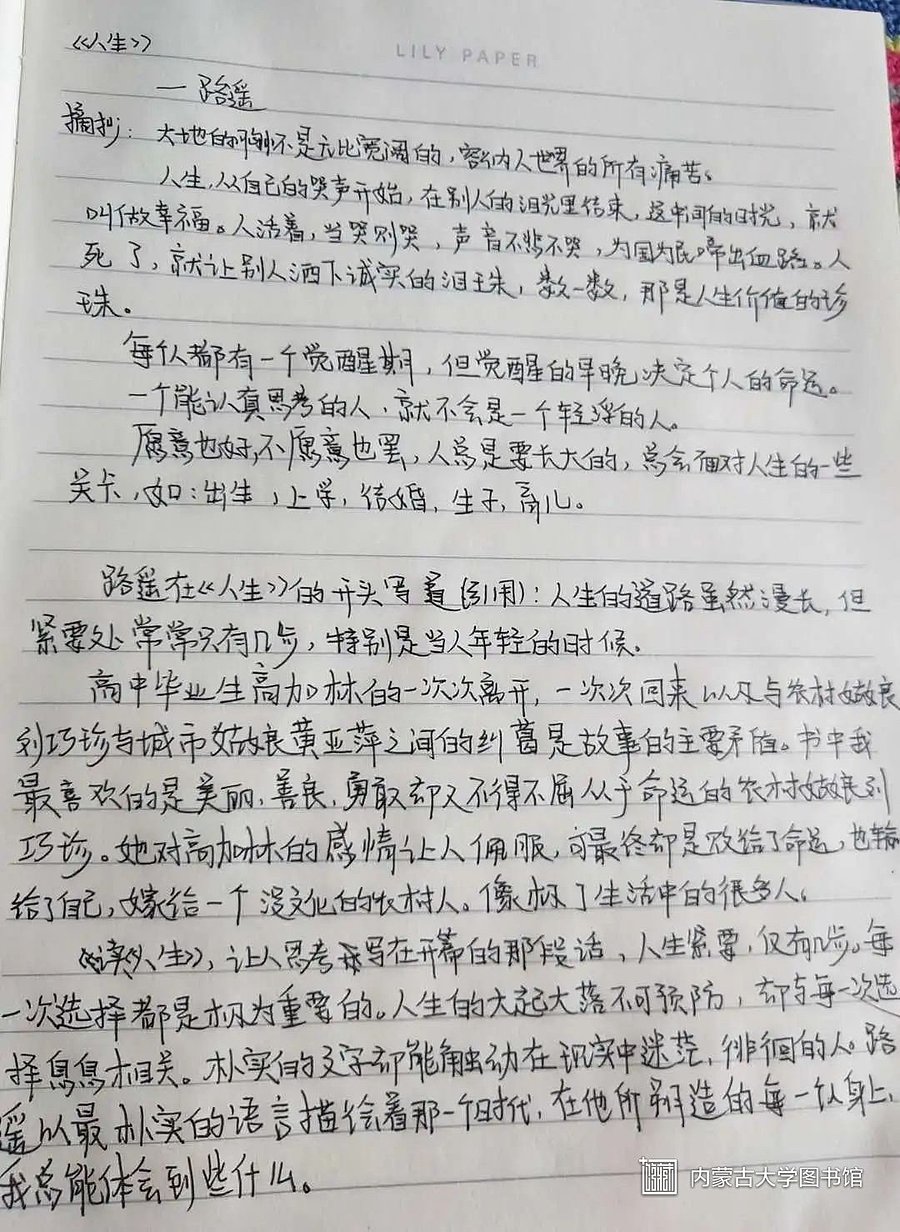 《人生》
LILY PAPER
— 路遥
摘抄：大地的胸怀是无比宽阔的，容纳人世界的所有痛苦。
人生，从自己的哭声开始，在别人的泪光里结束，这中间的时光，就
叫做幸福。人活着，当哭则哭，声音不悲不哭，为国为民啼出血路。人
死了，就让别人洒下诚实的泪珠，数一数，那是人生价值的珍
珠。
每个人都有一个觉醒期，但觉醒的早晚决定个人的命运。
一个能认真思考的人，就不会是一个轻浮的人。
愿意也好，不愿意也罢，人总是要长大的，总会面对人生的一些
关卡，如：出生，上学，结婚，生子，育儿。
路遥在《人生》的开头写道（引用）：人生的道路虽然漫长，但
紧要处常常只有几步，特别是当人年轻的时候。
高中毕业生高加林的一次次离开，一次次回来以及与农村姑娘
刘巧珍与城市姑娘黄亚萍之间的纠葛是故事的主要矛盾。书中我
最喜欢的是美丽，善良，勇敢却又不得不屈从于命运的农村姑娘刘
巧珍。她对高加林的感情让人佩服，可最终却是败给了命运，也输
给了自己，嫁给一个没文化的农村人。像极了生活中的很多人。
读《人生》，让人思考写在开篇的那段话，人生紧要，仅有几步。每
一次选择都是极为重要的。人生的大起大落不可预防，却与每一次选
择息息相关。朴实的文字却能触动在现实中迷茫，徘徊的人。路
遥以最朴实的语言描绘着那一个时代，在他所塑造的每一个人身上，
我总能体会到些什么。
内蒙古大学图书馆